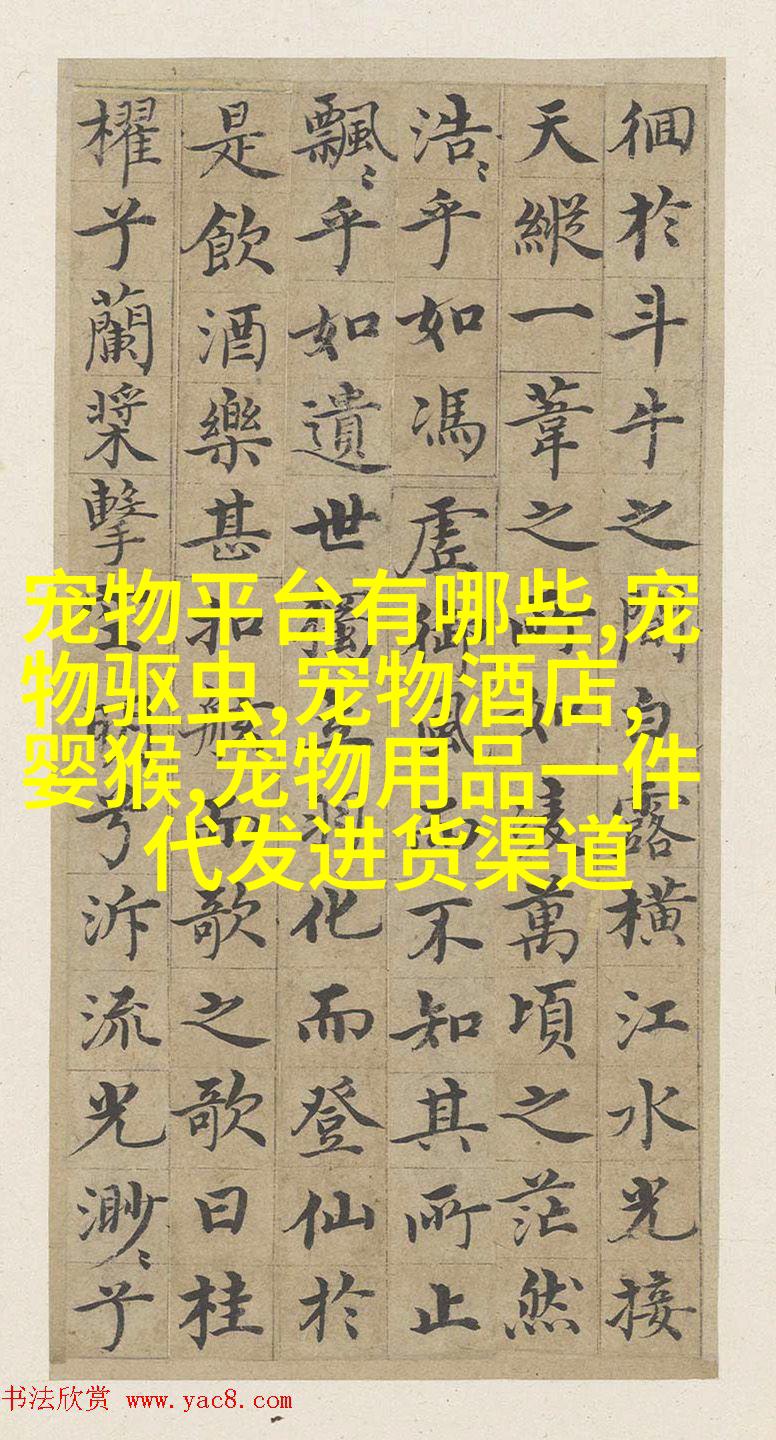 徊於斗牛之間白露橫江水光接
天縱一葦之所如萬頃之茫然
浩〻乎如馮虛御風而不知其所止
飄〻乎如遺世獨立羽化而登仙於
是飲酒樂甚扣舷而歌之歌曰桂
櫂兮蘭槳擊空兮泝流光渺〻兮
宠物平台有哪些,宠
物驱虫,宠物酒店,
婴猴,宠物用品一件
代发进货渠道
书法欣赏 www.yac8.com